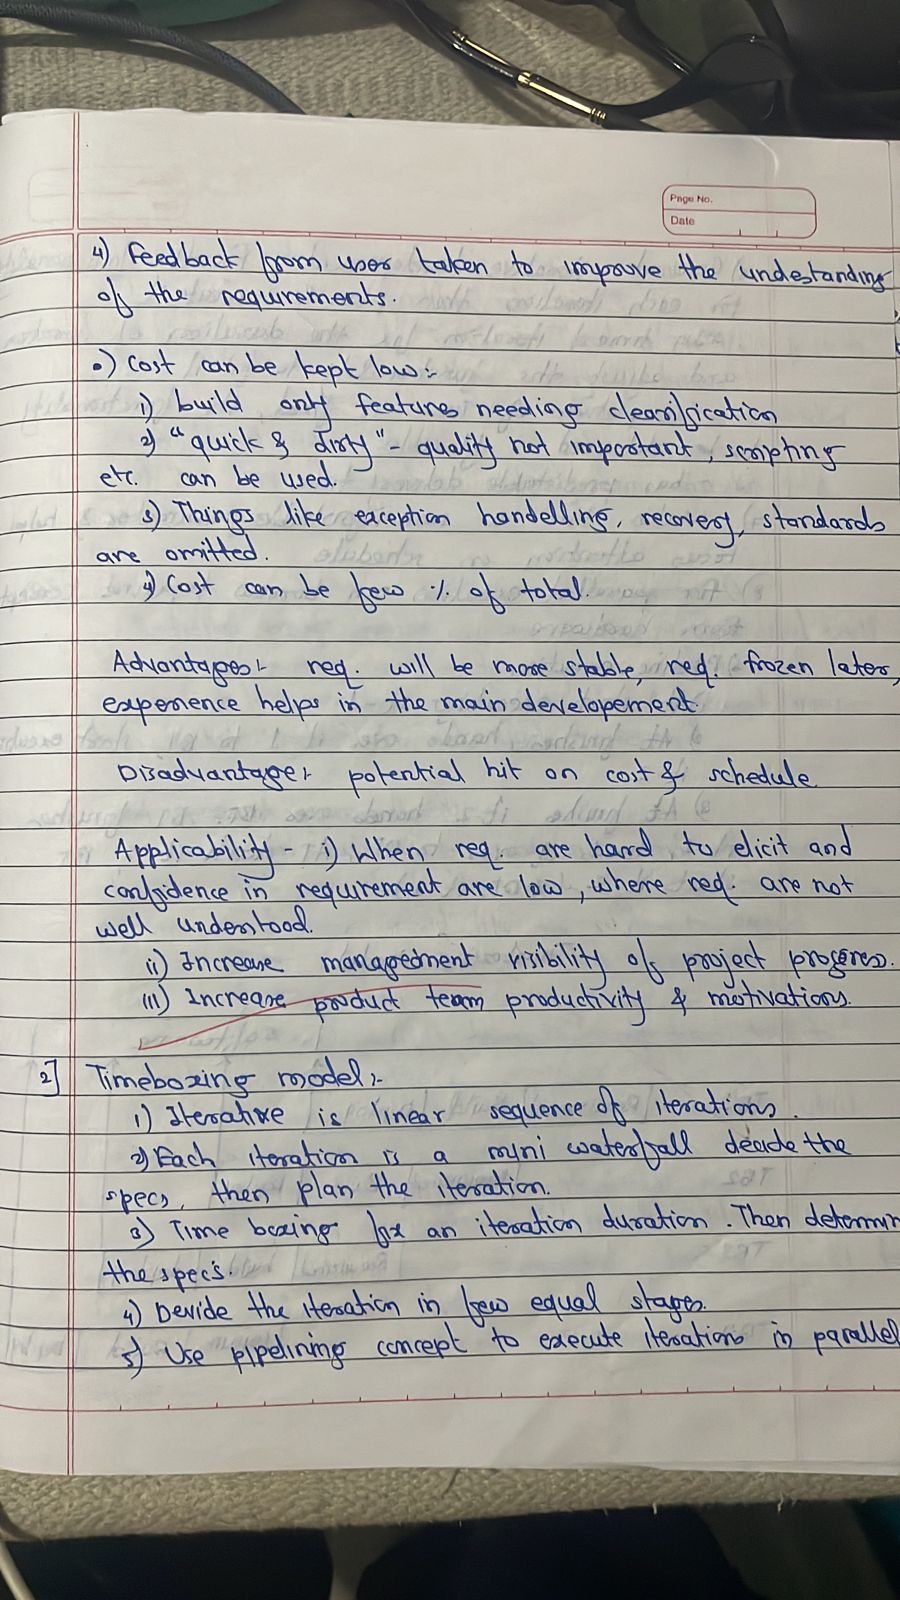 Page No.
Date
4) Feedback from user taken to improve the undestanding
of the requirements.
•) Cost can be kept low:-
1) build only features needing clearification
2) "quick & dirty" - quality not important, scripting
etc. can be used.
3) Things like exception handelling, recovery, standards
are omitted.
4) Cost can be few % of total.
Advantages:- req. will be more stable, req. frozen later,
experience helps in the main developement.
Disadvantage:- potential hit on cost & schedule
Applicability - i) When req. are hard to elicit and
confidence in requirement are low, where req. are not
well understood.
ii) Increase management visibility of project progress.
iii) Increase product team productivity & motivations.
2] Timeboxing model:-
1) Iterative is linear sequence of iterations.
2) Each iteration is a mini waterfall decide the
specs, then plan the iteration.
3) Time boxing fix an iteration duration. Then determin
the specs.
4) Devide the iteration in few equal stages.
5) Use pipelining concept to execute iterations in parallel